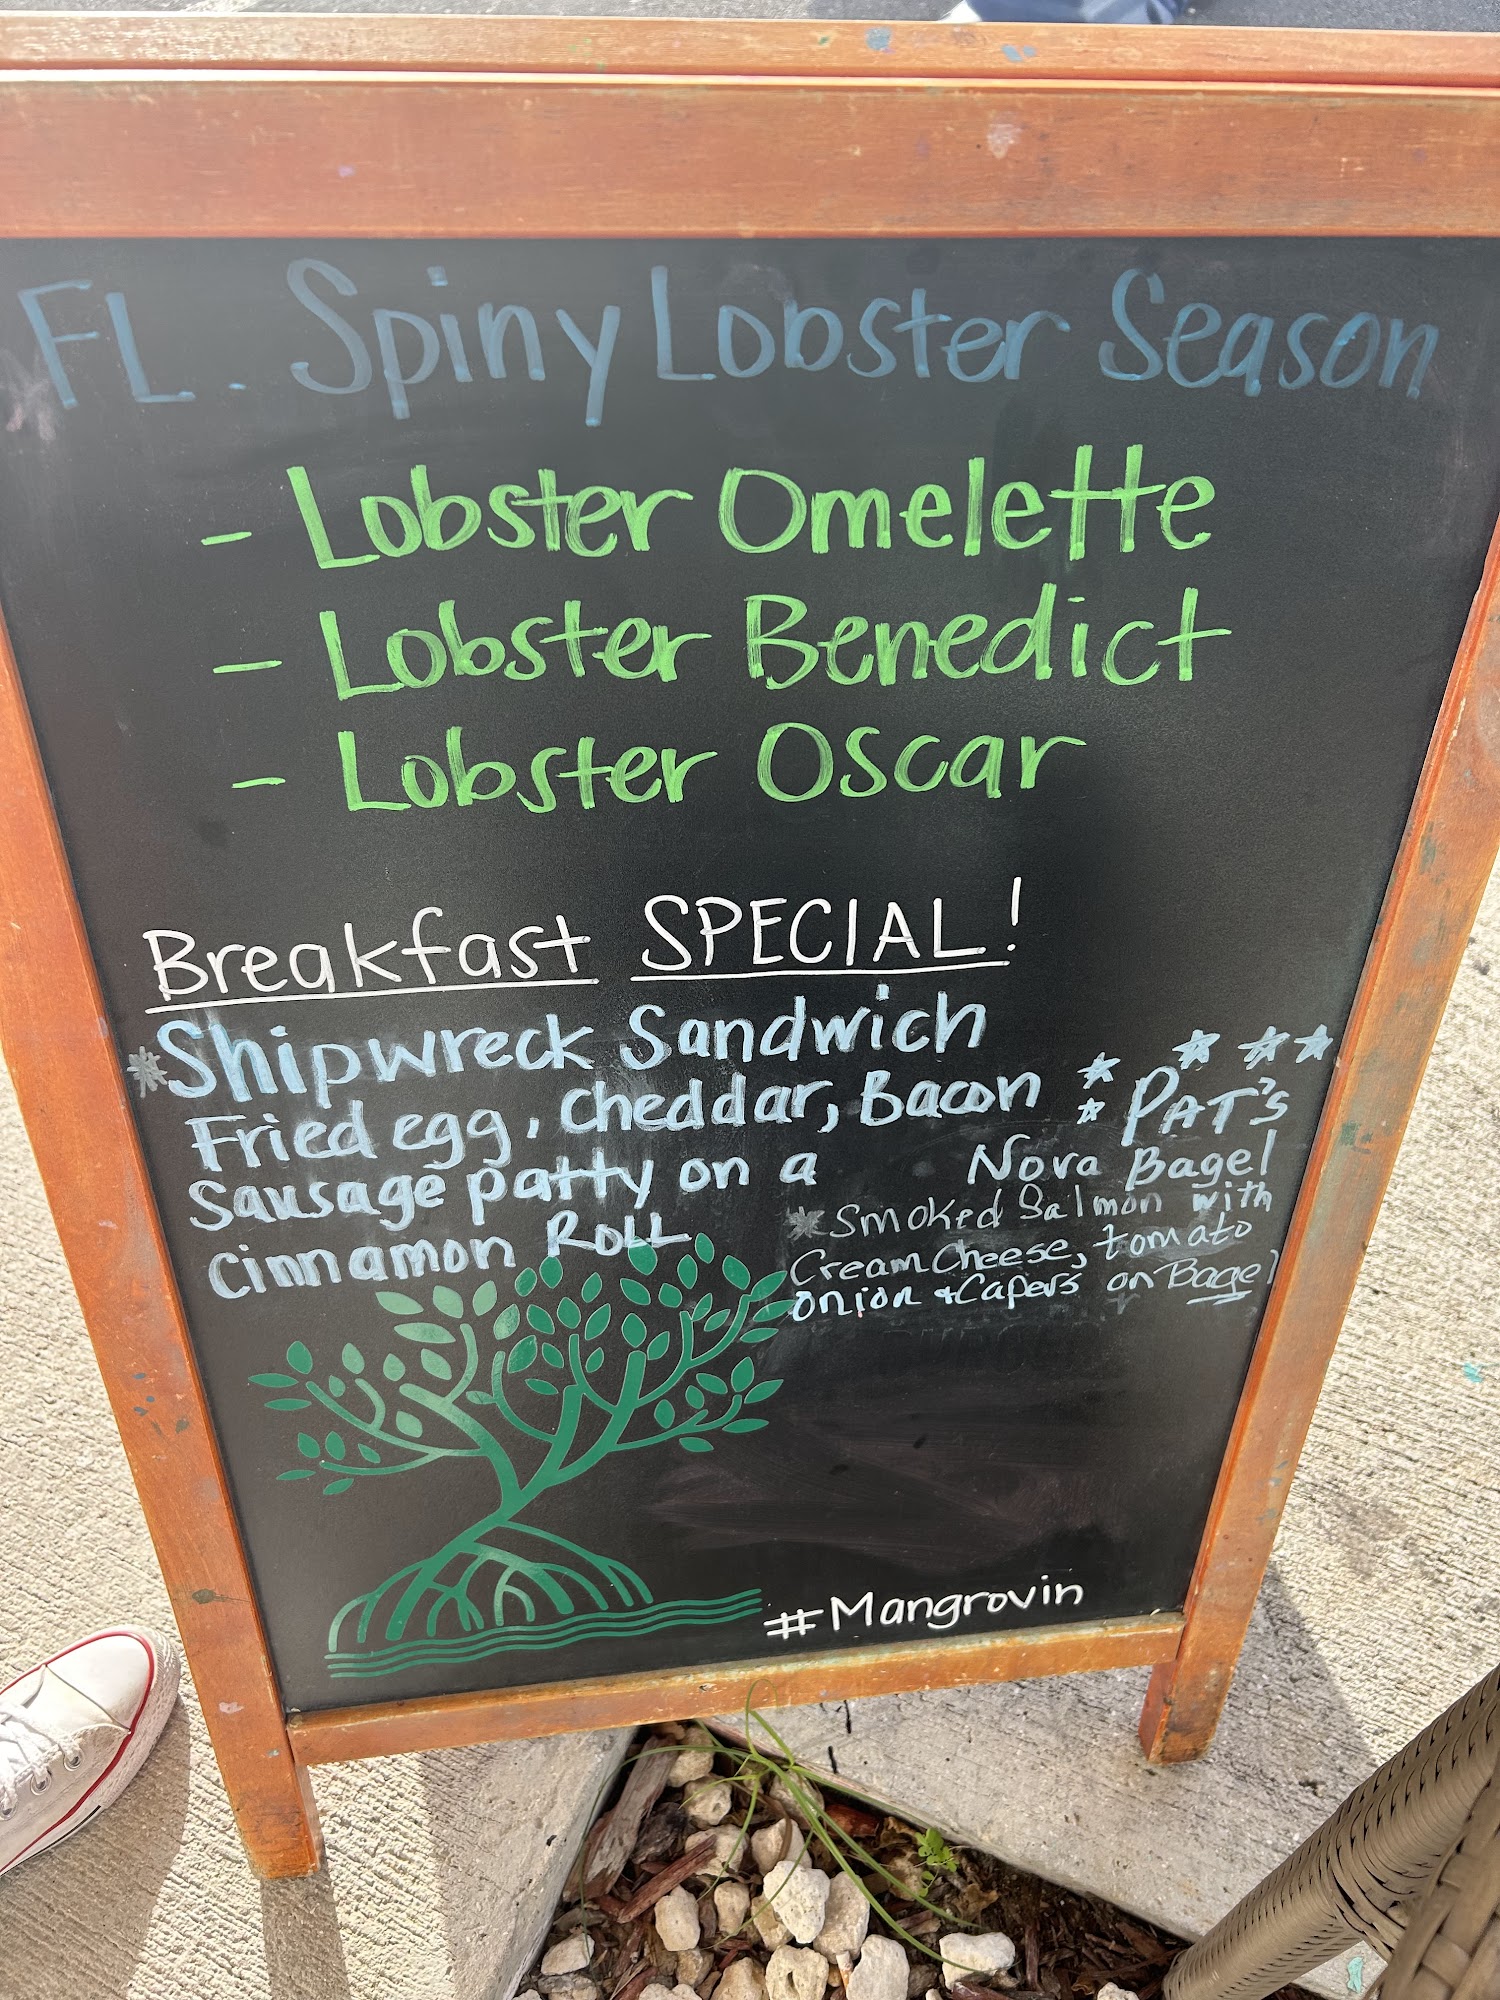 FL. Spiny Lobster Season
- Lobster Omelette
- Lobster Benedict
- Lobster Oscar
Breakfast SPECIAL!
Shipwreck Sandwich
Fried egg, Cheddar, Bacon
Sausage patty on a
Cinnamon ROLL
PAT'S
Nova Bagel
Smoked Salmon with
Cream Cheese, tomato
onion + Capers on Bagel
#Mangrovin